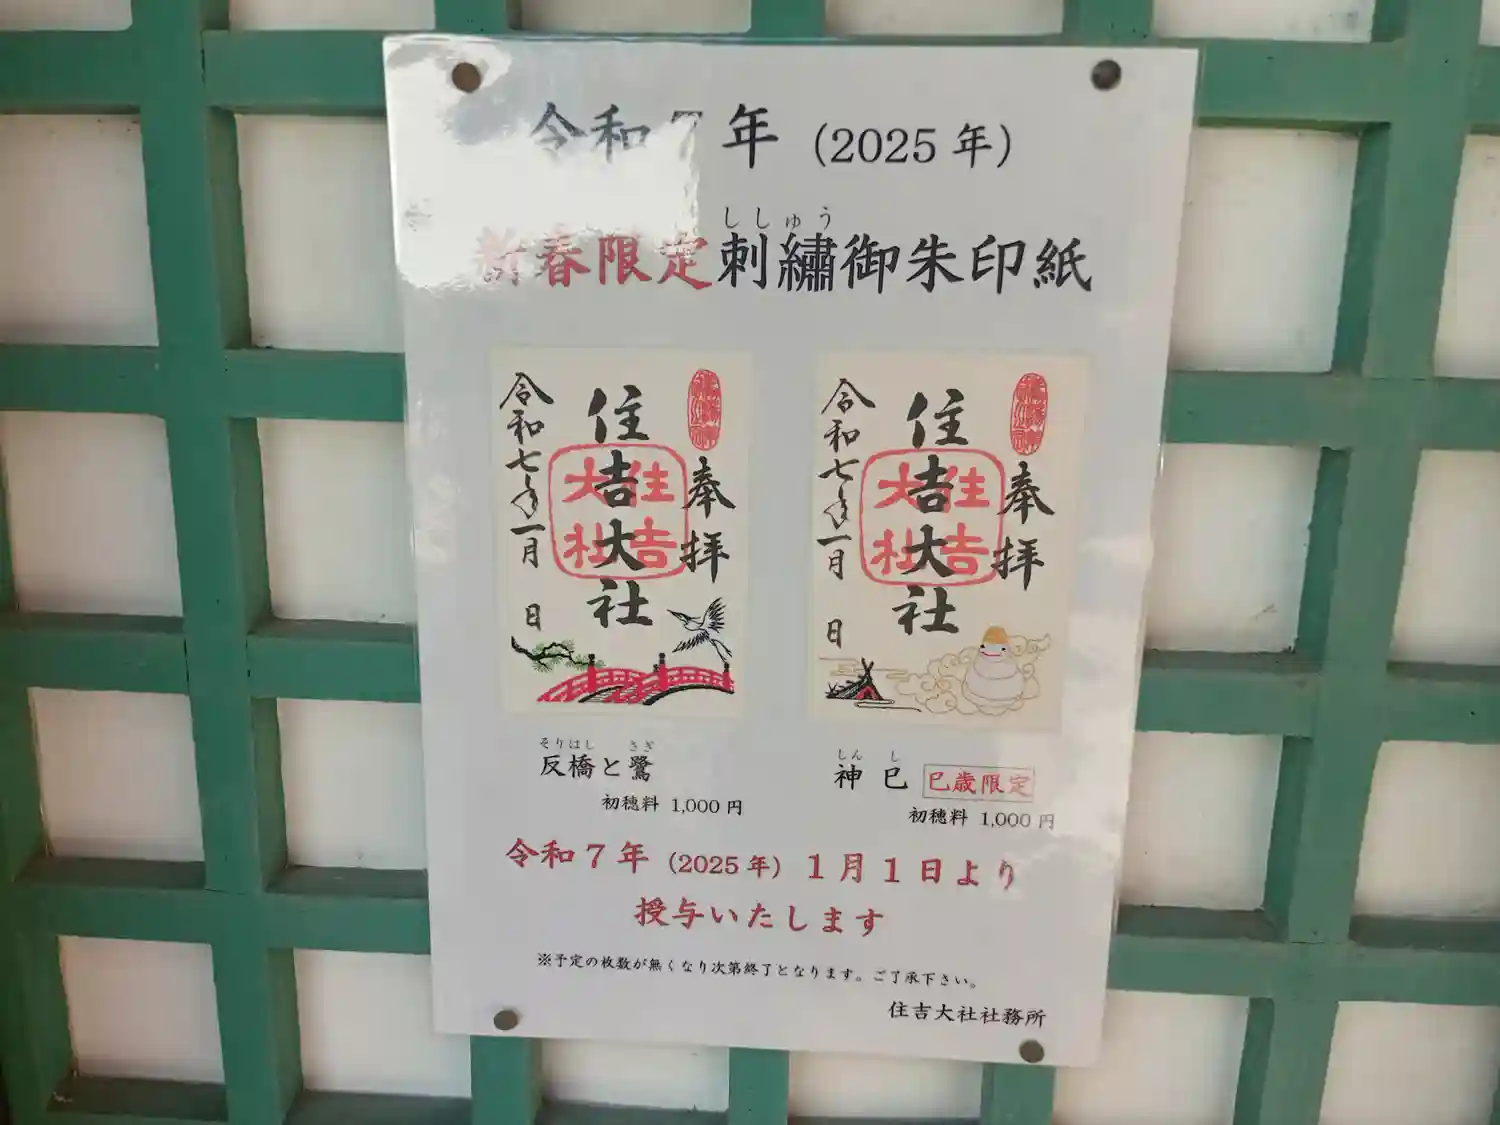 令和７年（2025年）
ししゅう
新春限定刺繡御朱印紙
奉拝
住吉大社
住吉大社
令和七年一月 日
奉拝
住吉大社
住吉大社
令和七年一月 日
そりはし さぎ
反橋と鷺
初穂料 1,000円
しん し
神 巳 巳歳限定
初穂料 1,000円
令和７年（2025年）１月１日より
授与いたします
※予定の枚数が無くなり次第終了となります。ご了承下さい。
住吉大社社務所